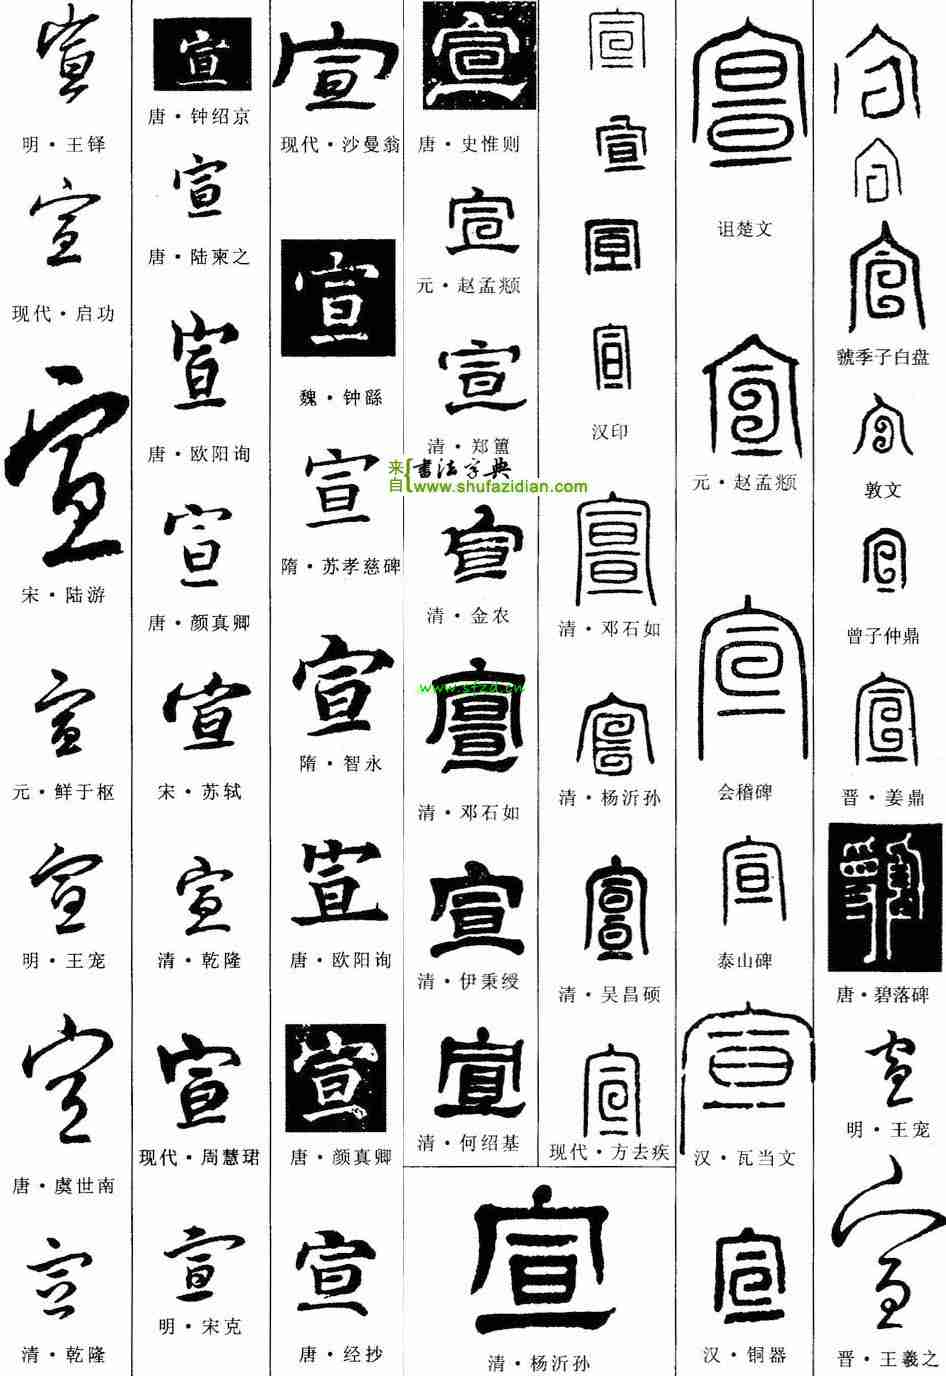 宣
明·王铎
宣
现代·启功
宣
宋·陆游
宣
元·鲜于枢
宣
明·王宠
宣
唐·虞世南
宣
清·乾隆
宣
唐·钟绍京
宣
唐·陆柬之
宣
唐·欧阳询
宣
唐·颜真卿
宣
宋·苏轼
宣
清·乾隆
宣
现代·周慧珺
宣
明·宋克
宣
现代·沙曼翁
宣
魏·钟繇
宣
隋·苏孝慈碑
宣
隋·智永
宣
唐·欧阳询
宣
唐·颜真卿
宣
唐·经抄
宣
唐·史惟则
宣
元·赵孟頫
宣
清·郑簠
来自{书法字典
www.shufazidian.com
宣
清·金农
www.sfzd.cw
宣
清·邓石如
宣
清·伊秉绶
宣
清·何绍基
宣
清·杨沂孙
宣
宣
宣
宣
汉印
宣
清·邓石如
宣
清·杨沂孙
宣
清·吴昌硕
宣
现代·方去疾
宣
诅楚文
宣
元·赵孟頫
宣
会稽碑
宣
泰山碑
宣
汉·瓦当文
宣
汉·铜器
宣
宣
宣
虢季子白盘
宣
敦文
宣
曾子仲鼎
宣
晋·姜鼎
唐·碧落碑
宣
明·王宠
宣
晋·王羲之